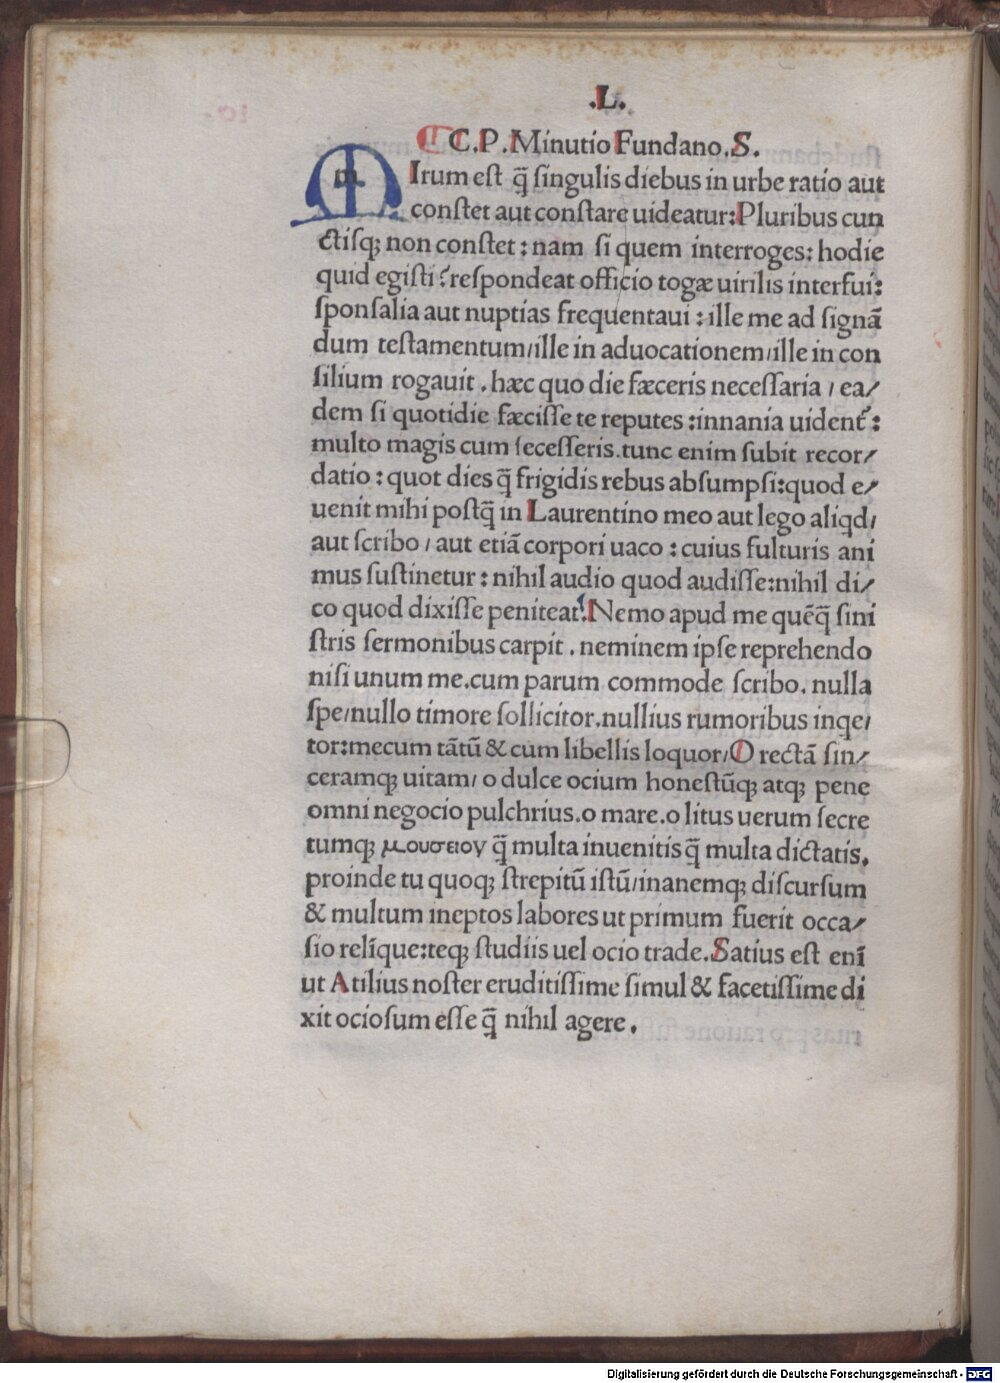 .L.
C.P.Minutio Fundano.S.
MIrum eſt q̃ ſingulis diebus in urbe ratio aut
conſtet aut conſtare uideatur:Pluribus cun
ctiſqꝫ non conſtet : nam ſi quem interroges: hodie
quid egiſti? reſpondeat officio togæ uirilis interfui:
ſponſalia aut nuptias frequentaui : ille me ad ſignã
dum teſtamentum/ille in aduocationem/ille in con
ſilium rogauit . hæc quo die fæceris neceſſaria / ea/
dem ſi quotidie fæciſſe te reputes :innania uident᷑:
multo magis cum ſeceſſeris.tunc enim ſubit recor/
datio : quot dies q̃ frigidis rebus abſumpſi:quod e/
uenit mihi poſtq̃ in Laurentino meo aut lego aliqd/
aut ſcribo / aut etiã corpori uaco : cuius fulturis ani
mus ſuſtinetur : nihil audio quod audiſſe:nihil di/
co quod dixiſſe peniteat.Nemo apud me quẽq̃ ſini
ſtris ſermonibus carpit . neminem ipſe reprehendo
niſi unum me.cum parum commode ſcribo. nulla
ſpe/nullo timore ſollicitor.nullius rumoribus inqe/
tor:mecum tãtũ & cum libellis loquor/O rectã ſin/
ceramqꝫ uitam/ o dulce ocium honeſtũqꝫ atqꝫ pene
omni negocio pulchrius.o mare.o litus uerum ſecre
tumqꝫ μουσειου q̃ multa inuenitis q̃ multa dictatis.
proinde tu quoqꝫ ſtrepitũ iſtũ/inanemqꝫ diſcurſum
& multum ineptos labores ut primum fuerit occa/
ſio relĩque:teqꝫ ſtudiis uel ocio trade.Satius eſt enĩ
ut Atilius noſter eruditiſſime ſimul & facetiſſime di
xit ocioſum eſſe q̃ nihil agere .
Digitalisierung gefördert durch die Deutsche Forschungsgemeinschaft - DFG